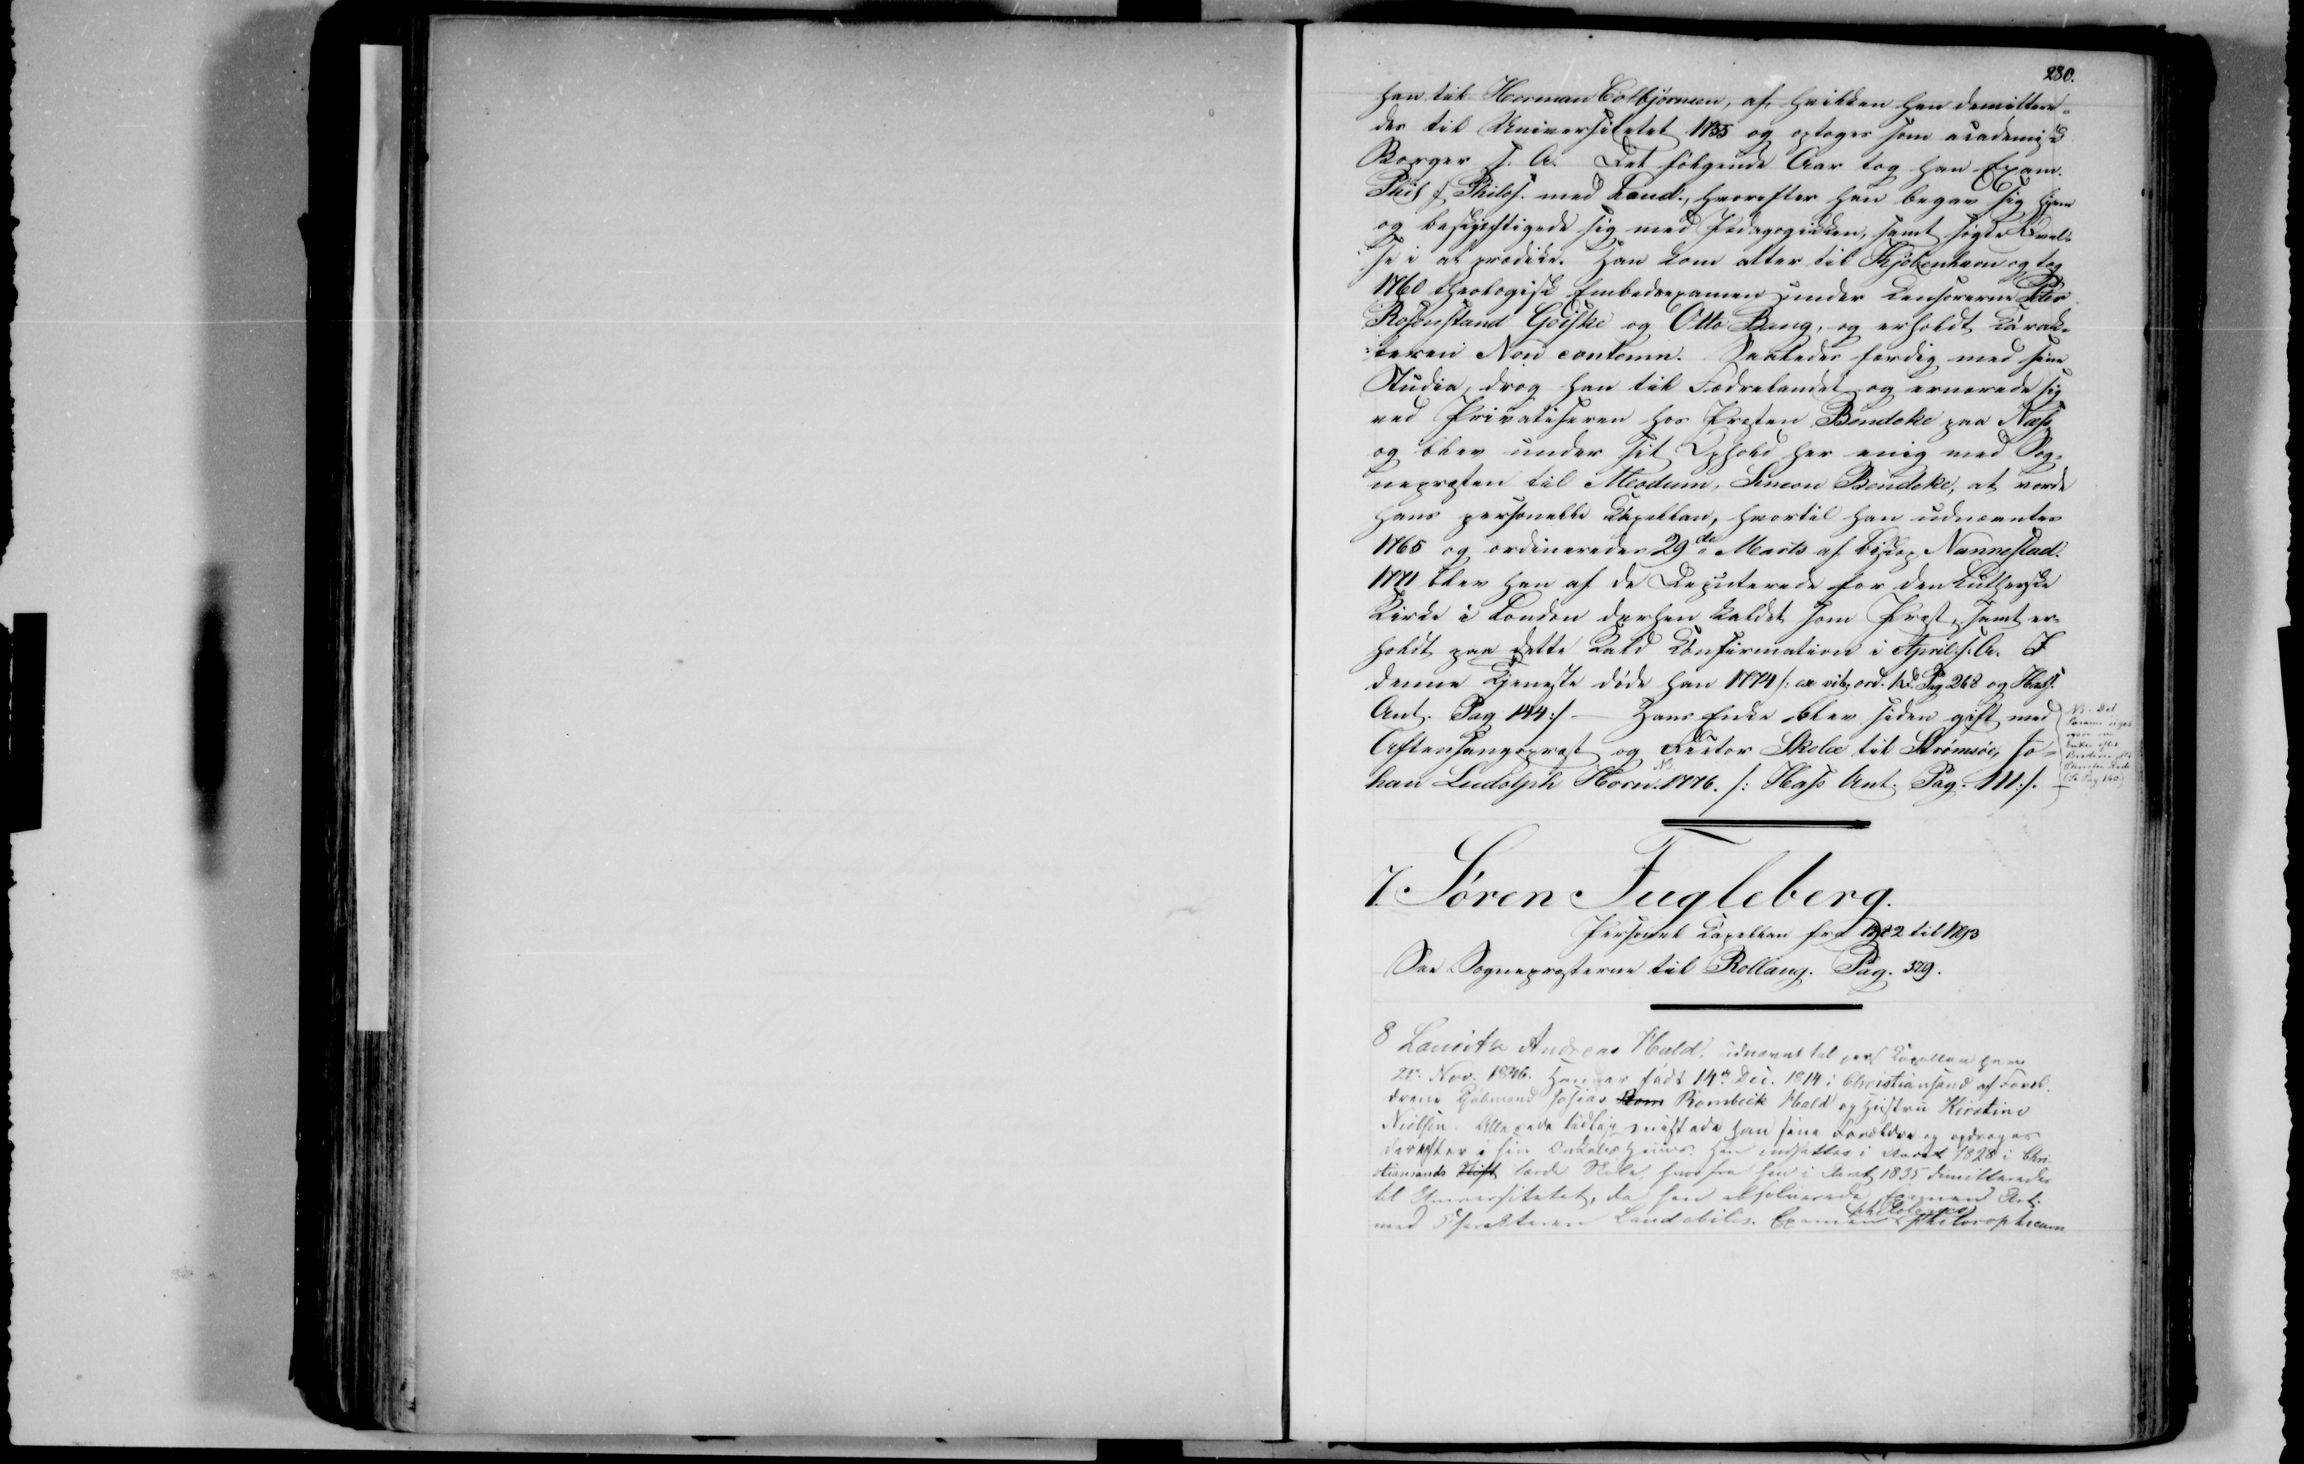 280.
han til Herman Colbjørnsen, af hvilken han demittere-
des til Universitetet 1755 og optoges som academisk
Borger s. A. Det følgende Aar tog han Exam.
Phil & Philos. med Laud., hvorefter han begav sig hjem
og beskjæftigede sig med Pædagogikken, samt søgte Øvel-
se i at prædike. Han kom atter til Kjøbenhavn og tog
1760 theologisk Embedsexamen under Censorerne Peter
Rosenstand Goiske og Otto Bang, og erholdt Karak-
teren Non contemn. Saaledes færdig med sine
Studia, drog han til Fædrelandet og ernærede sig
ved Privatiseren hos Præsten Bendeke paa Næss
og blev under sit Ophold her enig med Sog-
nepræsten til Modum, Simon Bendeke, at vorde
hans personelle Kapellan, hvortil han udnævntes
1765 og ordineredes 29de Marts af Biskop Nannestad.
1771 blev han af de Deputerede for den Lutherske
Kirke i London derhen kaldet som Præst, samt er-
holdt paa dette Kald Confirmation i April s. A. I
denne Tjeneste døde han 1774 /: ex vit. ord. Pag 268 og Hass
Ant. Pag 144:/ — Hans Enke blev siden gift med
Aftensangspræst og Rector Skolæ til Strømsøe, Jo-
han Ludolph Horn NB. 1776. /: Hass Ant. Pag. 111:/.
NB. Det
Samme siges
ogsaa om
Enken efter
(Se Pag 160)
7. Søren Fugleberg.
Personel Kapellan fra 1782 til 1793
See Sognepræsterne til Rollaug. Pag. 379.
8 Lauritz Andreas Hald, udnævnt til pers Kapellan her
21. Nov. 1846. Han er født 14de Dec. 1814 i Christiansand af Foræl-
drene Kjøbmand Josias Rom Rombeck Hald og Hustru Kirstine
Nielsen. Allerede tidlig mistede han sine Forældre og opdroges
derefter i sin Onkels Huus. Han indsattes i Aaret 1828 i Chri-
stiansands Stift lærde Skole, hvorfra han i Aaret 1835 dimitteredes
til Universitetet, da han absolverede Examen Art.
med Charakteren Laudabilis. Examen philologico philosophicum